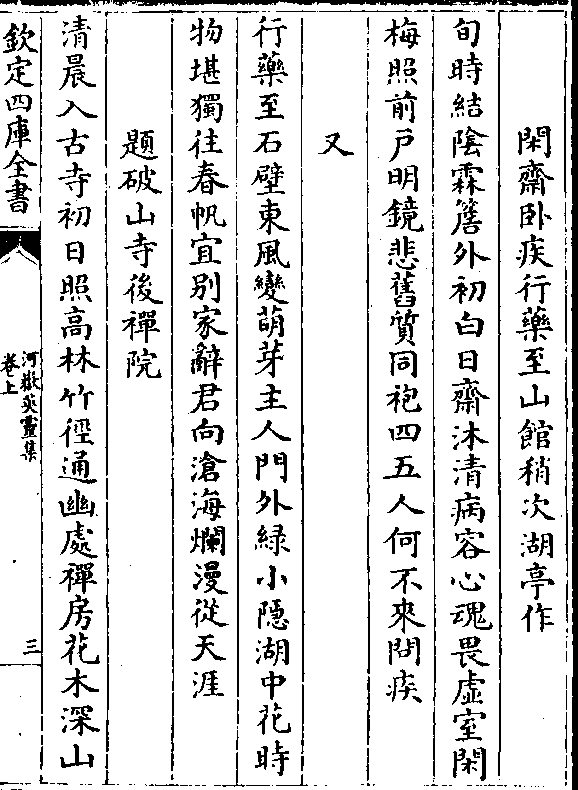 閑齋卧疾行藥至山館稍次湖亭作
旬時結陰霖簷外初白日齋沐清病容心魂畏虛室閑
梅照前戶明鏡悲舊質同袍四五人何不來問疾
又
行藥至石壁東風變萌芽主人門外緑小隱湖中花時
物堪獨往春帆宜别家辭君向滄海爛漫從天涯
題破山寺後禪院
清晨入古寺初日照高林竹徑通幽處禪房花木深山
欽定四庫全書
河嶽英靈集
卷上
三